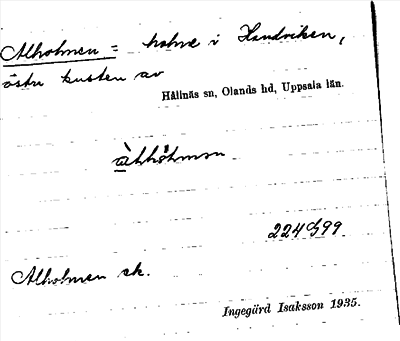 Alholmen = holme i Handviken,
östra kusten av
Hållnäs sn, Olands hd, Uppsala län.
224 99
Alholmen ek.
Ingegärd Isaksson 1935.